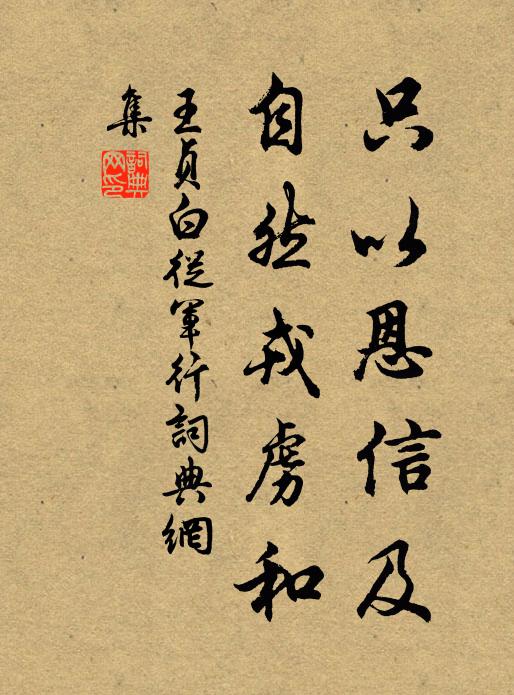 只以恩信及
自然戎虜和
王貞白從軍行詞典網
集
詞典
网印